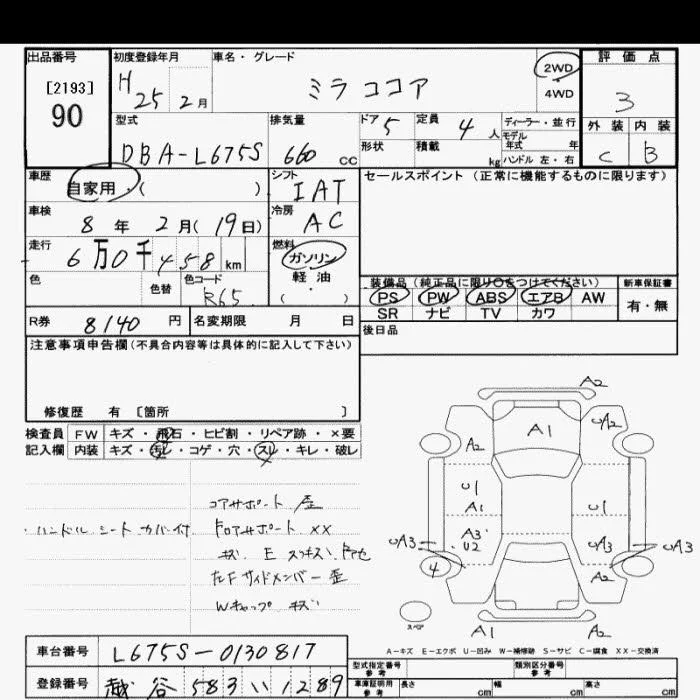 出品番号
[2193]
90
初度登録年月
H 25 2月
車名・グレード
ミラココア
2WD
4WD
評価点
3
外装 内装
C B
型式
DBA-L675S
排気量
660 cc
ドア 5
定員 4 人
形状
積載 kg
ディーラー・並行
モデル年式 年
ハンドル 左・右
車歴
自家用・( )
シフト
IAT
セールスポイント (正常に機能するものに限ります)
車検
8年 2月(19日)
冷房
AC
走行
6万0千458km
燃料
ガソリン
軽油
・
( )
色
色替
色コード
R65
装備品 (純正品に限り○をつけてください)
新車保証書
PS PW ABS エアB AW
有・無
SR ナビ TV カワ
R券 8140 円
名変期限 月 日
後日品
注意事項申告欄(不具合内容等は具体的に記入して下さい)
修復歴 有 [箇所 ]
検査員
記入欄
FW キズ・飛石・ヒビ割・リペア跡・×要
内装 キズ・汚レ・コゲ・穴・スレ・キレ・破レ
コアサポート 歪
・ハンドル シート カバー付
ドロアサポート XX
キズ E
サイドメンバー 歪
Wキャップ キズ
A2
A1
UA2
A2
U1
A1
U1
A3
U2
UA3
UA3
UA3
4
A2
スペア
A1
A2
A-キズ E-エクボ U-凹み W-補修跡 S-サビ C-腐食 XX-交換済
車台番号 L675S-0130817
登録番号 越谷 583 い 1289
型式指定番号
参考
類別区分番号
参考
車庫証明用
参考
長さ cm
幅 cm
高さ cm